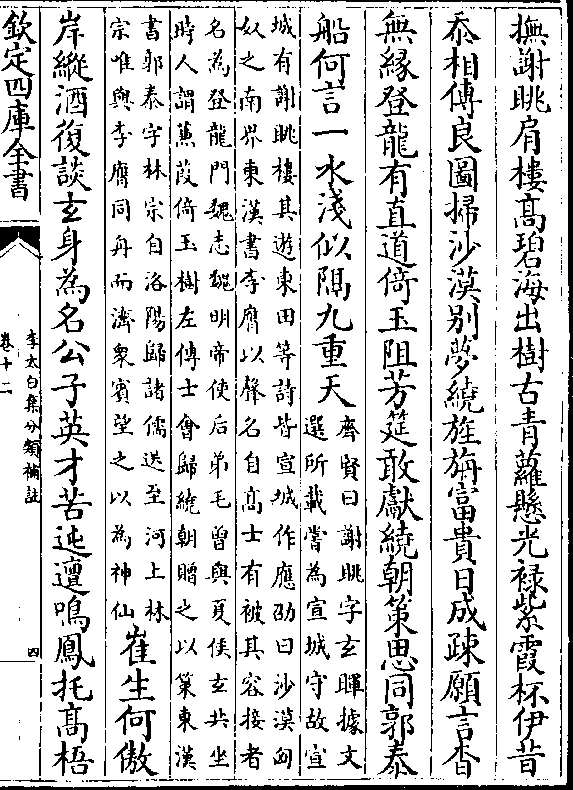 撫謝朓肩樓髙碧海出樹古青蘿懸光禄紫霞杯伊昔
忝相傳良圖掃沙漠别夢繞旌旃富貴日成疎願言杳
無緣登龍有直道倚玉阻芳筵敢獻繞朝策思同郭泰
船何言一水淺似隔九重天
齊賢曰謝朓字玄暉據文
選所載嘗為宣城守故宣
城有謝朓樓其遊東田等詩皆宣城作應劭曰沙漠匈
奴之南界東漢書李膺以聲名自髙士有被其容接者
名為登龍門魏志魏明帝使后弟毛曾與夏侯玄共坐
時人謂蒹葭倚玉樹左傳士會歸繞朝贈之以策東漢
書郭泰字林宗自洛陽歸諸儒送至河上林
宗唯與李膺同舟而濟衆賓望之以為神仙
崔生何傲
岸縱酒復談玄身為名公子英才苦迍邅鳴鳳托髙梧
欽定四庫全書
李太白集分類補註
卷十二
四